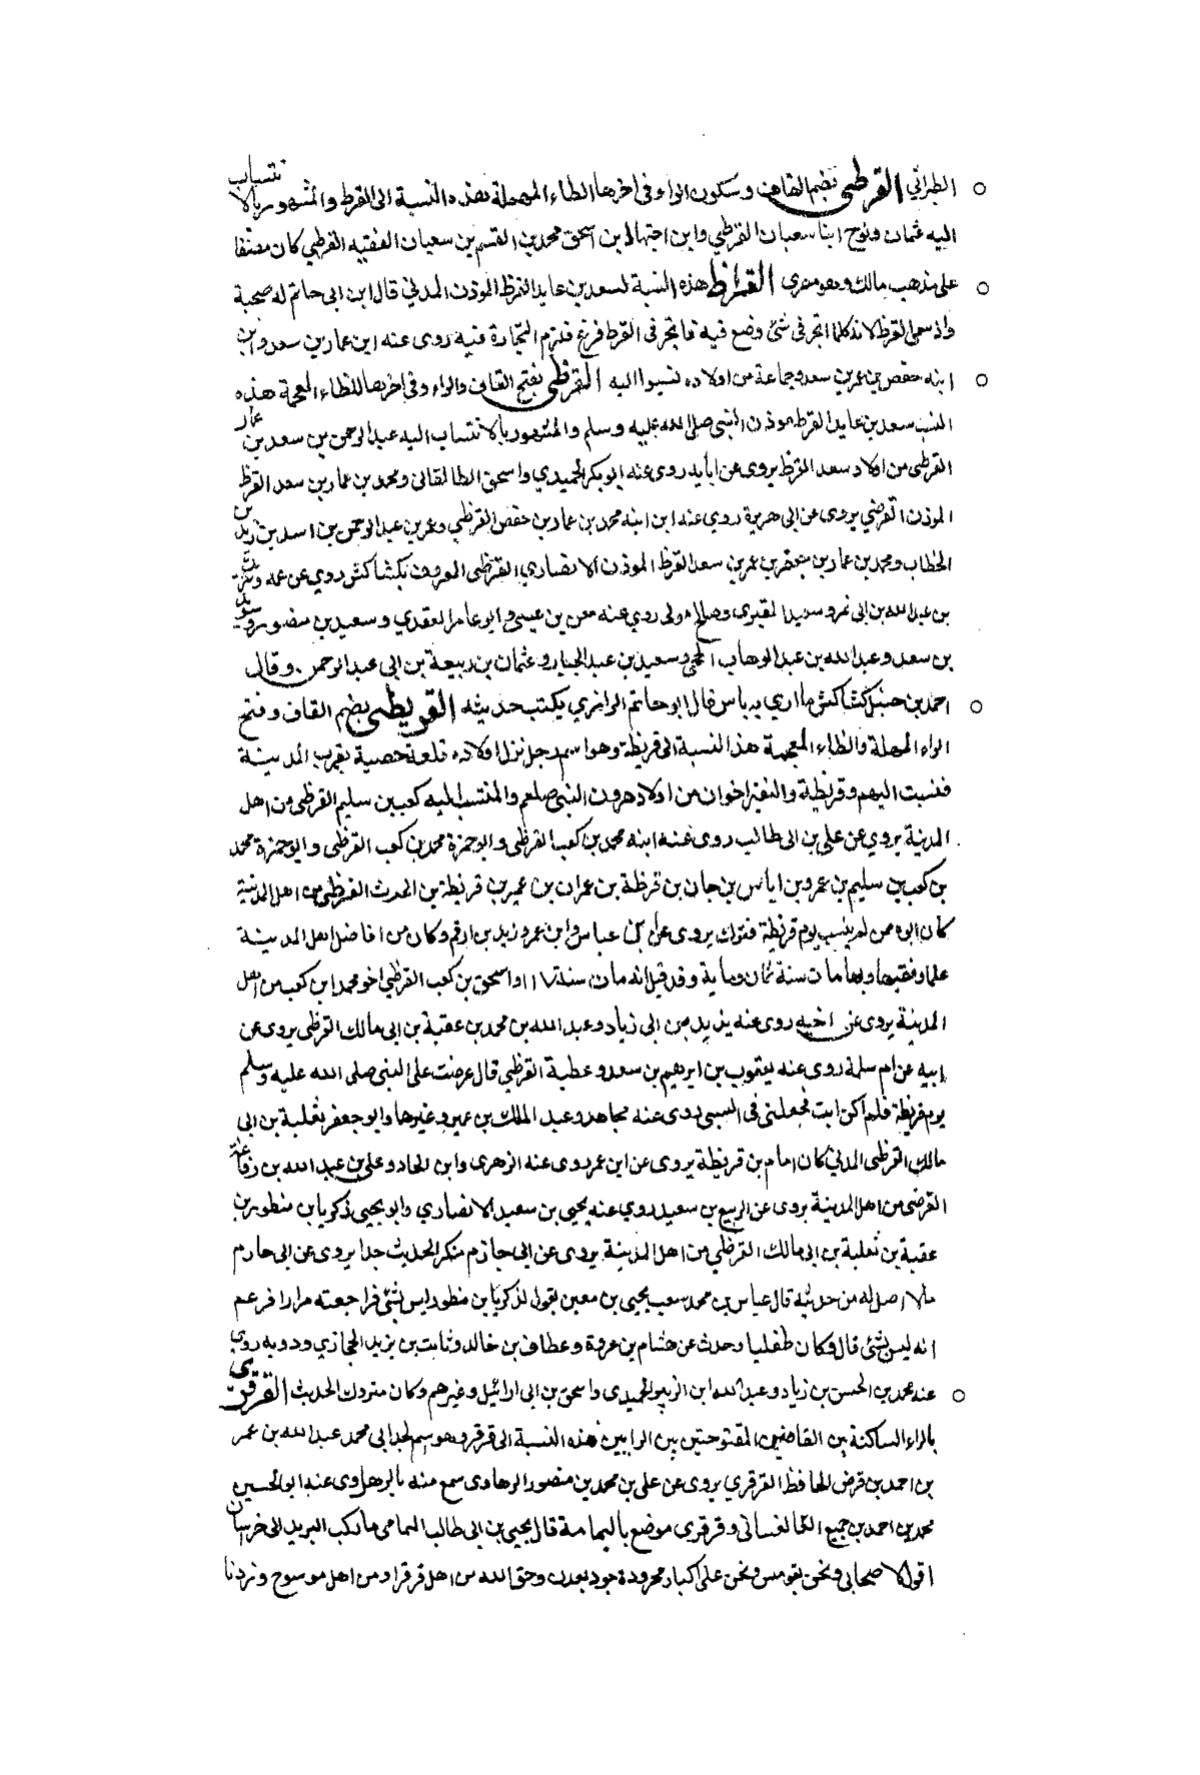 الطبراني القرطي بضم القاف وسكون الراء وفي اخرها الطاء المهملة هذه النسبة الى القرط والمشهور بالانتساب
اليه عثمان ونوح ابنا سعبان القرطي وابن اسحق محمد بن القسم بن سعبان الفقيه القرطي كان مصنفا
على مذهب مالك وهو مصرى القرظ هذه النسبة لسعد بن عايد القرظ الموذن المدني قال ابن ابي حاتم له صحبة
وانما سمى القرظ لانه كلما اتجر في شئ وضع فيه فاتجر في القرظ فربح فلزم التجارة فيه روى عنه ابن عمار بن سعد وابن
ابنه حفص بن عمر بن سعد وجماعة من اولاده نسبوا اليه القرظي بفتح القاف والراء وفي اخرها الظاء المعجمة هذه
النسبة سعد بن عايد القرظ موذن النبي صلى الله عليه وسلم والمشهور بالانتساب اليه عبد الرحمن بن سعد بن عمار
القرظي من اولاد سعد القرظ يروى عن ابايه روى عنه ابو بكر الحميدي واسحق الطالقاني ومحمد بن عمار بن سعد القرظ
الموذن القرضي يروى عن ابي هريرة روي عنه ابن ابنه محمد بن عمار بن حفص القرظي وعمر بن عبد الرحمن بن اسد بن زيد بن
الخطاب ومحمد بن عمار بن حفص بن عمر بن سعد القرظ الموذن الانصاري القرظي المعروف بكشاكش روي عن عمه
بن عبد الله بن ابي نمر وسعيد المقبرى وصالح مولى روي عنه معن بن عيسى وابو عامر العقدي وسعيد بن منصور وسويد
بن سعد وعبد الله بن عبد الوهاب الحجبي وسعيد بن عبد الجبار وعثمان بن ربيعة بن ابي عبد الرحمن وقال
احمد بن حنبل كشاكش ما ارى به باس قال ابو حاتم الرازي يكتب حديثه القريظي بضم القاف وفتح
الراء المهملة والظاء المعجمة هذا النسبة الى قريظة وهو اسم رجل نزل اولاده قلعة حصية بقرب المدينة
فنسبت اليهم وقريظة والنضير اخوان من اولاد هرون النبي صلعم والمنتسب اليه كعب بن سليم القرظي من اهل
المدينة يروي عن علي بن ابي طالب روى عنه ابنه محمد بن كعب القرظي وابو حمزة محمد بن كعب القرظي وابو حمزة محمد
بن كعب بن سليم بن عمرو بن اياس بن حان بن قرظة بن عمران بن عمير بن قريظة بن الحدث القرظي من اهل المدينة
كان ابوه ممن لم ينسب يوم قريظة فترك يروى عن بن عباس وابن عمر وزيد بن ارقم وكان من افاضل اهل المدينة
علما وفقها وبها مات سنة ثمان وماية وقد قيل انه مات سنة ١١٧ واسحق بن كعب القرظي اخو محمد ابن كعب من اهل
المدينة يروى عن اخيه روى عنه يزيد بن ابي زياد وعبد الله بن محمد بن عقبة بن ابي مالك القرظي يروى عن
ابيه عن ام سلمة روى عنه يعقوب بن ابرهيم بن سعد وعطية القرظي قال عرضت على النبي صلى الله عليه وسلم
يوم قريظة فلم اكن انبت فجعلني في السبي روى عنه مجاهد وعبد الملك بن عمير وغيرها وابو جعفر ثعلبة بن ابي
مالك القرظي المدني كان امام بن قريظة يروى عن ابن عمر روى عنه الزهرى وابن الهاد وعلي بن عبد الله بن رفاعة
القرضي من اهل المدينة يروى عن الربيع بن سعيد روي عنه يحيى بن سعيد الانصاري وابو يحيى زكريا بن منظور بن
عقبة بن ثعلبة بن ابي مالك القرظي من اهل المدينة يروى عن ابي حازم منكر الحديث جدا يروى عن ابي حازم
مالا اصل له من حديثه قال عباس بن محمد سمعت يحيى بن معين يقول لزكريا بن منظور ليس بشئ فراجعته مرارا فزعم
انه ليس بشئ قال وكان طفليا وحدث عن هشام بن عروة وعطاف بن خالد وثابت بن يزيد الحجازي ودويه روى
عنه محمد بن الحسن بن زياد وعبد الله ابن الزبير الحميدى واسحق بن ابي ارائيل وغيرهم وكان متروك الحديث القرقرى
بالراء الساكنة بين القافين المفتوحتين بين الرايين هذه النسبة الى قرقر وهو اسم لجد ابي محمد عبد الله بن عمر
بن احمد بن قرض الحافظ القرقري يروى عن علي بن محمد بن منصور الرهاوى سمع منه بالرها روى عنه ابو الحسين
محمد بن احمد بن جميع الغساني وقرقرى موضع باليمامة قال يحيى بن ابي طالب اليمامي ماركب البريد الى خرسان
اقول لاصحابي ونحن بقومس ونحن على اكباد محرودة جود بعدت وحق الله من اهل قرقرا ومن اهل موسوح وزدنا